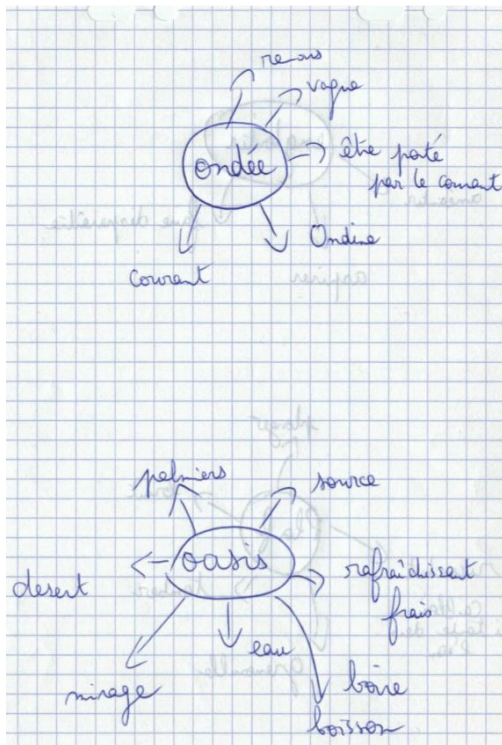 remous
vague
ondée
être porté
par le courant
Ondine
courant
palmiers
source
oasis
desert
rafraîchissant
frais
eau
mirage
boire
boisson